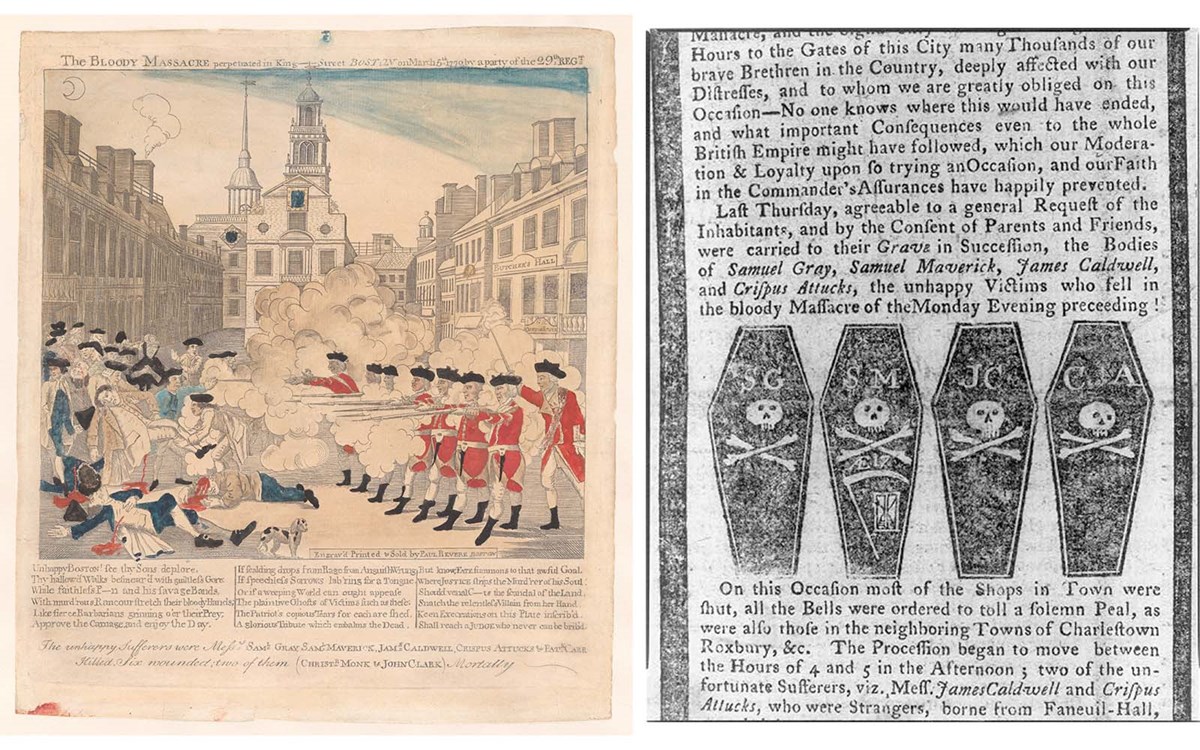 The BLOODY MASSACRE perpetrated in King Street BOSTON on March 5th 1770 by a party of the 29th REGT
BUTCHER'S HALL
Engrav'd Printed & Sold by PAUL REVERE BOSTON
Unhappy BOSTON! ſee thy Sons deplore,
Thy hallow'd Walks beſmear'd with guiltleſs Gore
While faithleſs P—n and his ſavage Bands,
With murd'rous Rancour ſtretch their bloody Hands;
Like fierce Barbarians grinning o'er their Prey,
Approve the Carnage and enjoy the Day.
If ſcalding drops from Rage from Anguiſh Wrung
If ſpeechleſs Sorrows lab'ring for a Tongue,
Or if a weeping World can ought appeaſe
The plaintive Ghoſts of Victims ſuch as theſe;
The Patriot's copious Tears for each are ſhed,
A glorious Tribute which embalms the Dead.
But know, FATE ſummons to that awful Goal.
Where JUSTICE ſtrips the Murd'rer of his Soul:
Should venal C—ts the ſcandal of the Land,
Snatch the relentleſs Villain from her Hand.
Keen Execrations on this Plate inſcrib'd,
Shall reach a JUDGE who never can be brib'd.
The unhappy Sufferers were Meſſs SAML GRAY, SAML MAVERICK, JAMS CALDWELL, CRISPUS ATTUCKS & PATK CARR
Killed. Six wounded; two of them (CHRISTR MONK & JOHN CLARK) Mortally
Hours to the Gates of this City many Thouſands of our
brave Brethren in the Country, deeply affected with our
Diſtreſſes, and to whom we are greatly obliged on this
Occaſion—No one knows where this would have ended,
and what important Conſequences even to the whole
Britiſh Empire might have followed, which our Modera-
tion & Loyalty upon ſo trying an Occaſion, and our Faith
in the Commander's Aſſurances have happily prevented.
Laſt Thurſday, agreeable to a general Requeſt of the
Inhabitants, and by the Conſent of Parents and Friends,
were carried to their Grave in Succeſſion, the Bodies
of Samuel Gray, Samuel Maverick, James Caldwell,
and Criſpus Attucks, the unhappy Victims who fell in
the bloody Maſſacre of the Monday Evening preceeding !
SG
SM
JC
CA
On this Occaſion moſt of the Shops in Town were
ſhut, all the Bells were ordered to toll a ſolemn Peal, as
were alſo thoſe in the neighboring Towns of Charleſtown
Roxbury, &c. The Proceſſion began to move between
the Hours of 4 and 5 in the Afternoon ; two of the un-
fortunate Sufferers, viz. Meſſ. James Caldwell and Criſpus
Attucks, who were Strangers, borne from Faneuil-Hall,